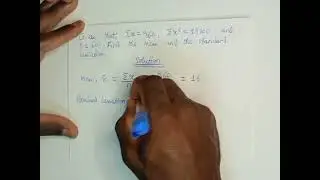 Given that, Σx = 960, Σx² = 18000 and
Find the mean and the standard
deviation.
Solution
Mean, x̄ = Σx = 16
Standard deviation